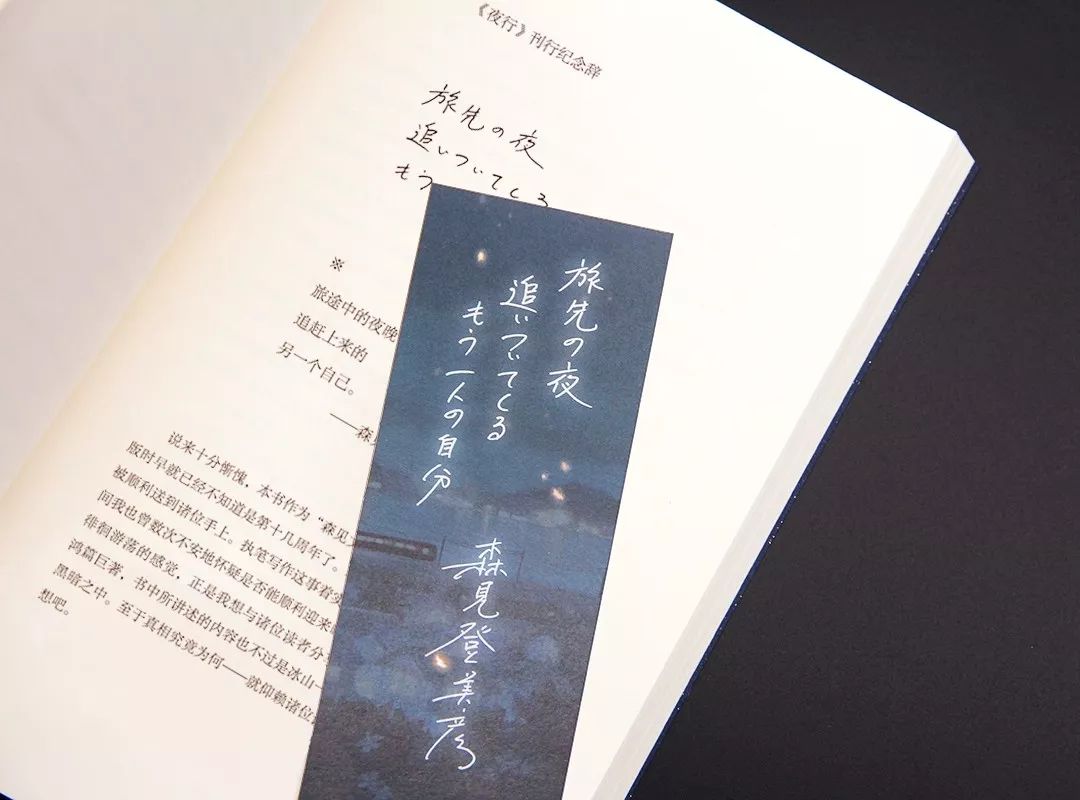 《夜行》刊行纪念辞
旅先の夜
追いついてくる
もう
※
旅途中的夜晚
追赶上来的
另一个自己。
——森
说来十分惭愧，本书作为“森见
版时早就已经不知道是第十几周年了。
被顺利送到诸位手上。执笔写作这事着实
间我也曾数次不安地怀疑是否能顺利迎来
徘徊游荡的感觉，正是我想与诸位读者分
鸿篇巨著，书中所讲述的内容也不过是冰山一
黑暗之中。至于真相究竟为何——就仰赖诸位
想吧。
旅先の夜
追いついてくる
もう一人の自分
森見登美彦